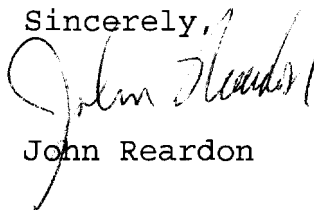 Sincerely,
John Reardon
John Reardon